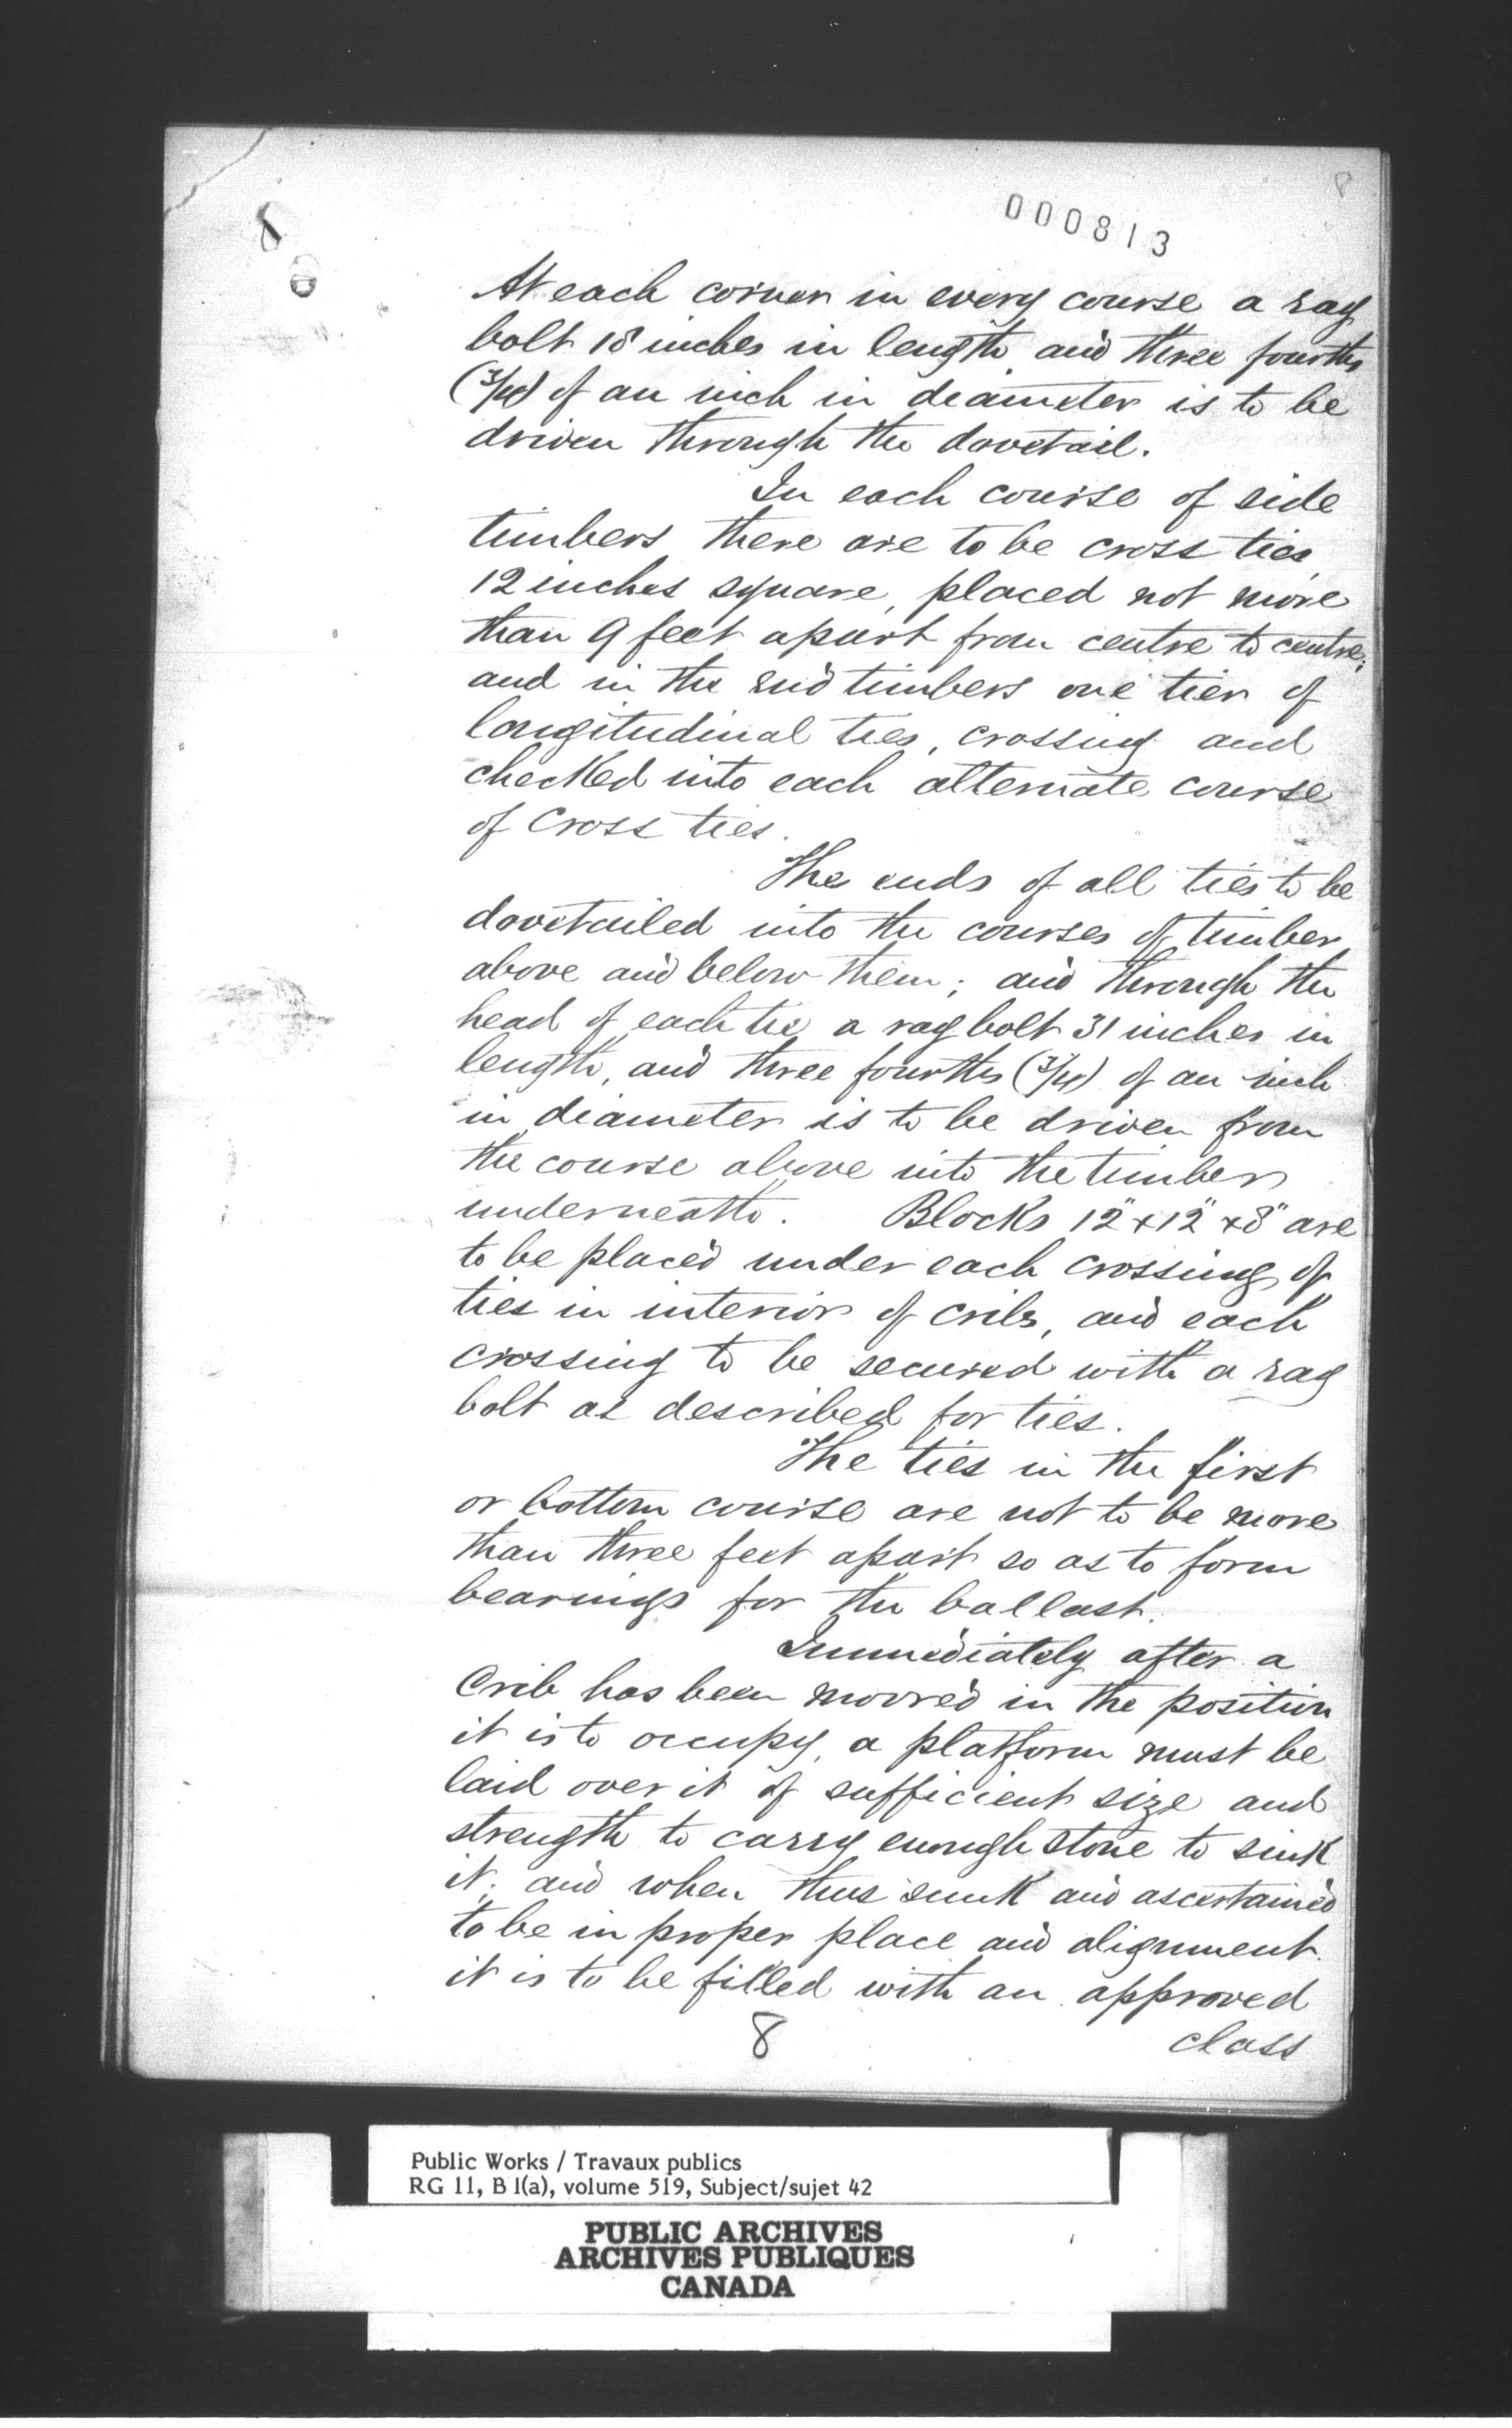 8
000813
8
8
At each corner in every course a rag
bolt 18 inches in length and three fourths
(3/4) of an inch in diameter is to be
driven through the dovetail.
In each course of side
timbers there are to be cross ties
12 inches square, placed not more
than 9 feet apart from centre to centre;
and in the end timbers one tier of
longitudinal ties, crossing and
checked into each alternate course
of cross ties.
The ends of all ties to be
dovetailed into the courses of timber
above and below them; and through the
head of each tie a rag bolt 31 inches in
length, and three fourths (3/4) of an inch
in diameter is to be driven from
the course above into the timber
underneath. Blocks 12" x 12" x 8" are
to be placed under each crossing of
ties in interior of cribs, and each
crossing to be secured with a rag
bolt as described for ties.
The ties in the first
or bottom course are not to be more
than three feet apart so as to form
bearings for the ballast.
Immediately after a
Crib has been moored in the position
it is to occupy, a platform must be
laid over it of sufficient size and
strength to carry enough stone to sink
it; and when thus sunk and ascertained
to be in proper place and alignment.
it is to be filled with an approved
8
class
Public Works / Travaux publics
RG 11, B 1(a), volume 519, Subject/sujet 42
PUBLIC ARCHIVES
ARCHIVES PUBLIQUES
CANADA